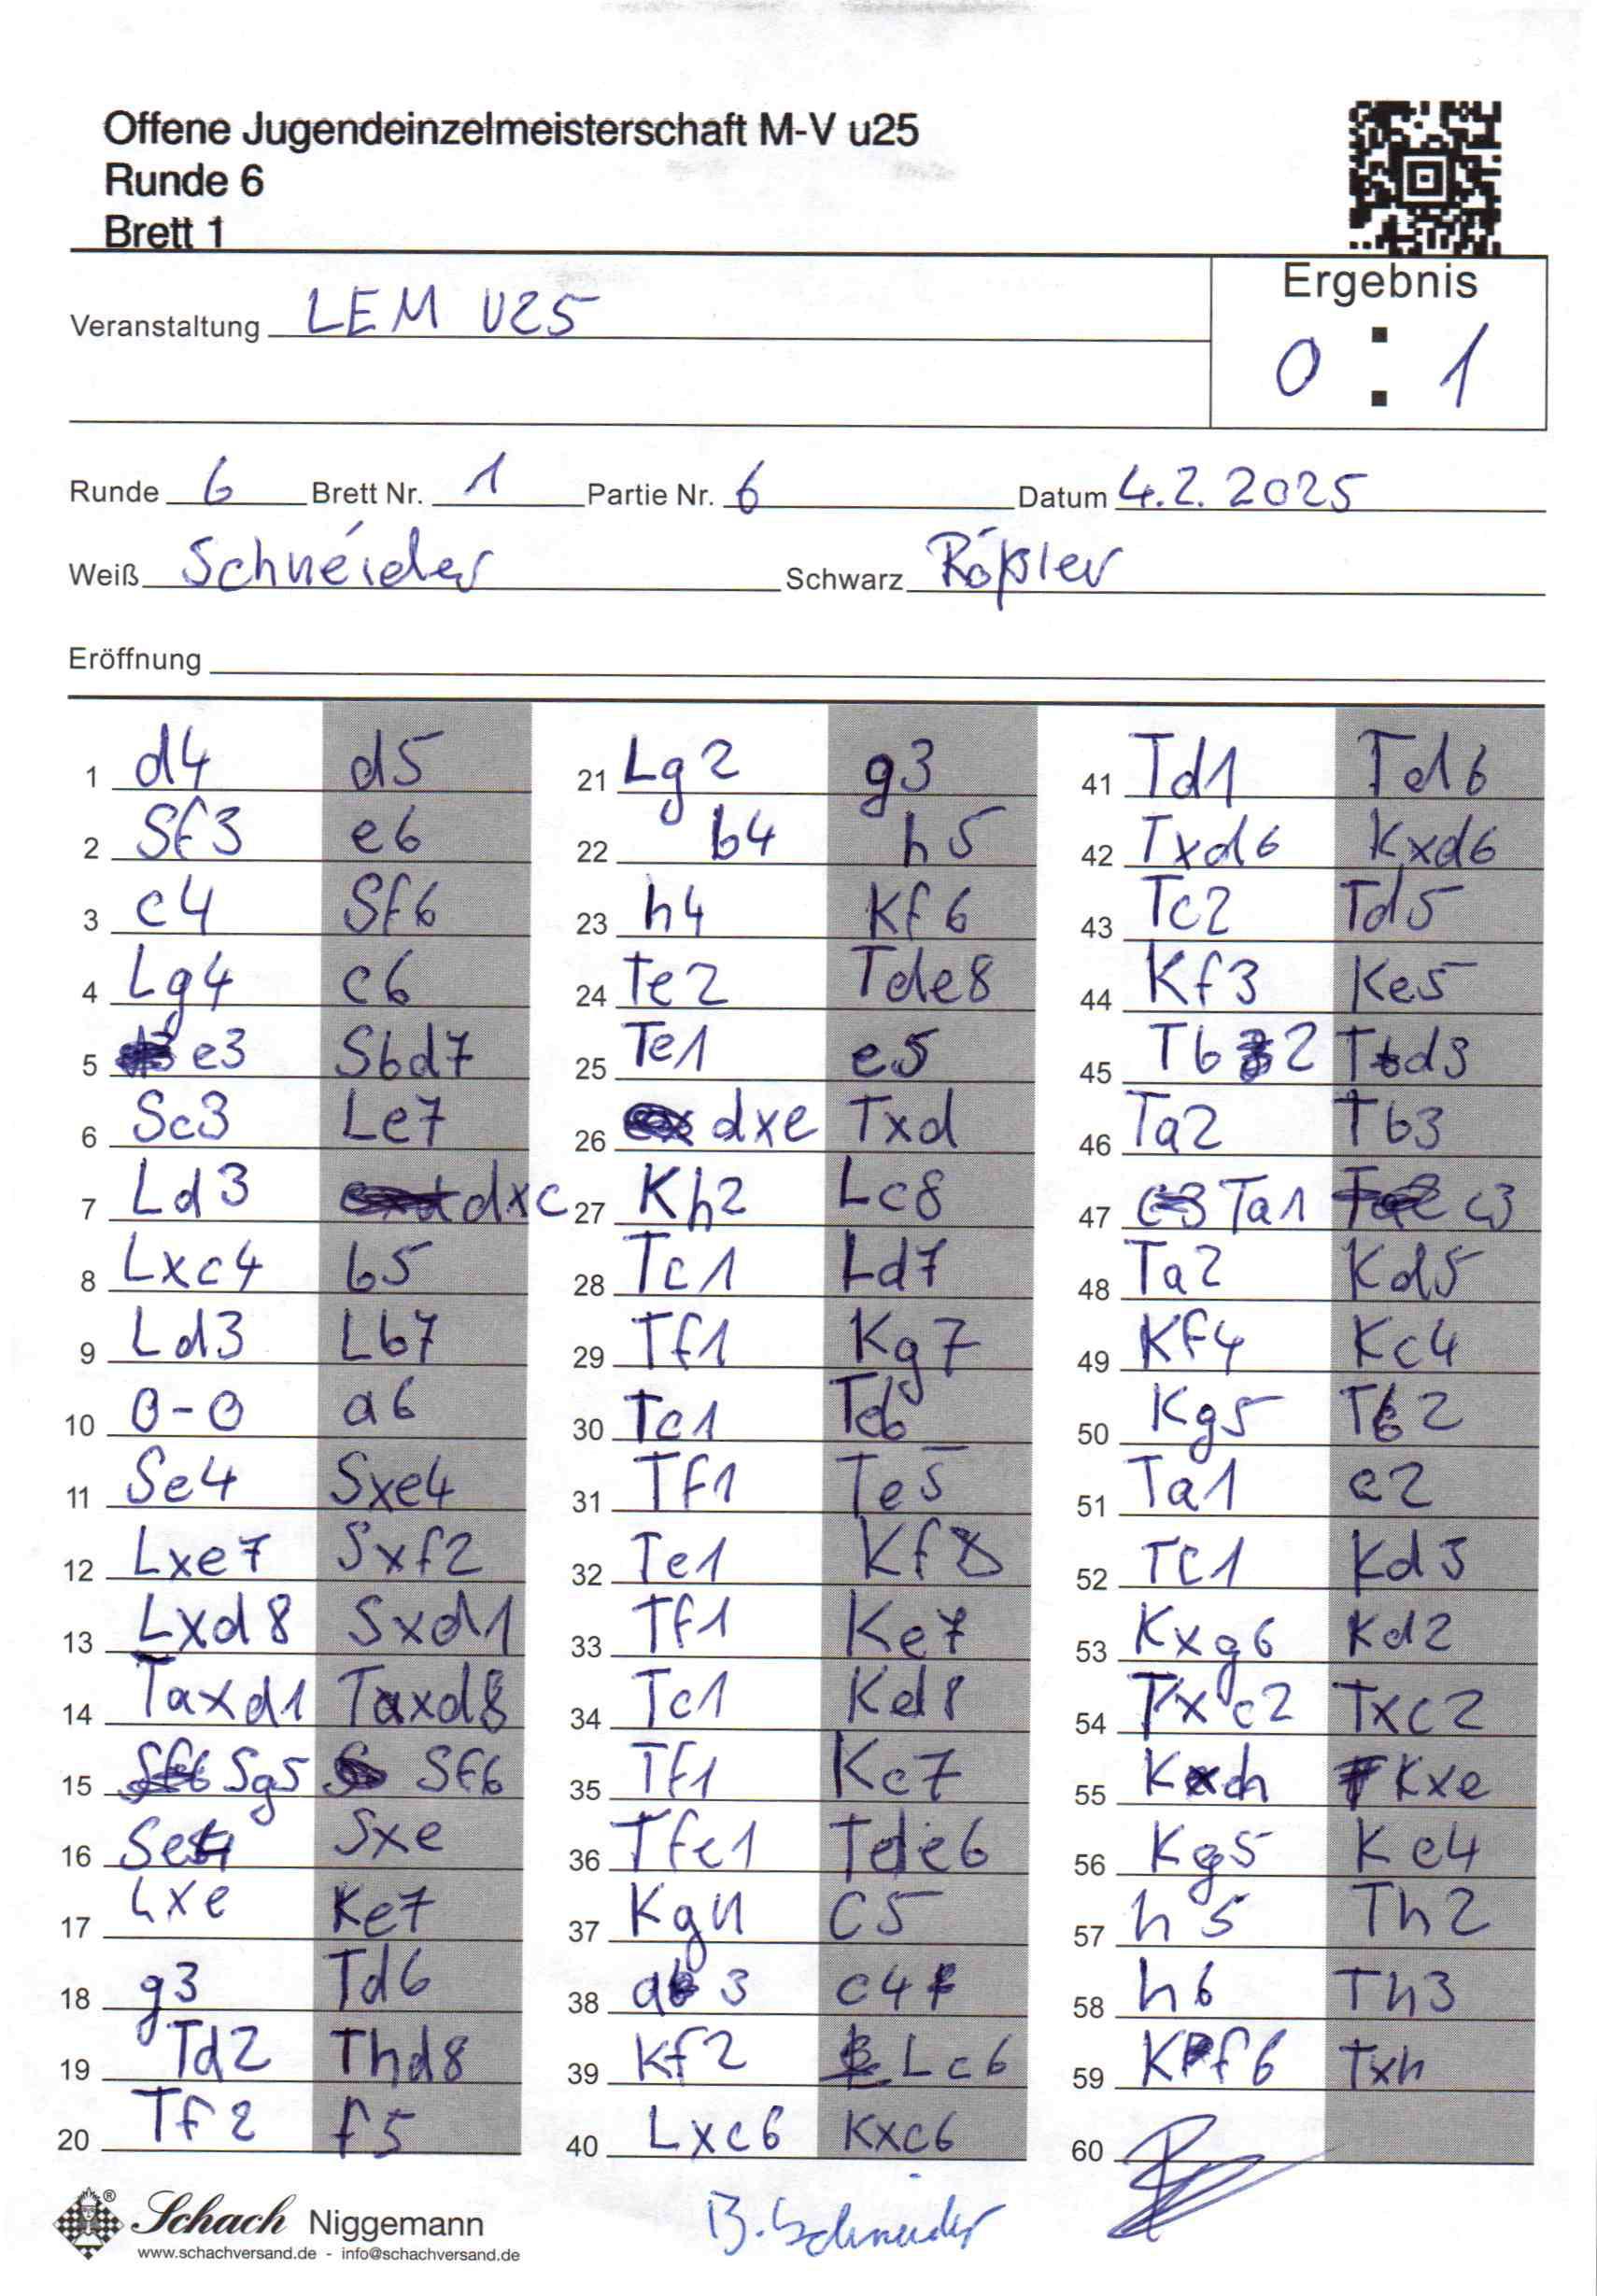 Offene Jugendeinzelmeisterschaft M-V u25
Runde 6
Brett 1
Ergebnis
Veranstaltung LEM U25
0 : 1
Runde 6 Brett Nr. 1 Partie Nr. 6 Datum 4.2.2025
Weiß Schneider Schwarz Rößler
Eröffnung
1 d4 d5
2 Sf3 e6
3 c4 Sf6
4 Lg4 c6
5 e3 Sbd7
6 Sc3 Le7
7 Ld3 dxc
8 Lxc4 b5
9 Ld3 Lb7
10 0-0 a6
11 Se4 Sxe4
12 Lxe7 Sxf2
13 Lxd8 Sxd1
14 Taxd1 Taxd8
15 Sg5 Sf6
16 Se4 Sxe
17 Lxe Ke7
18 g3 Td6
19 Td2 Thd8
20 Tf2 f5
21 Lg2 g3
22 b4 h5
23 h4 Kf6
24 Te2 Tde8
25 Te1 e5
26 dxe Txd
27 Kh2 Lc8
28 Tc1 Ld7
29 Tf1 Kg7
30 Tc1 Td6
31 Tf1 Te5
32 Te1 Kf8
33 Tf1 Ke7
34 Tc1 Kd8
35 Tf1 Kc7
36 Tfe1 Tde6
37 Kg1 c5
38 a3 c4
39 Kf2 Lc6
40 Lxc6 Kxc6
41 Td1 Td6
42 Txd6 Kxd6
43 Tc2 Td5
44 Kf3 Ke5
45 Tb2 Td3
46 Ta2 Tb3
47 Ta1 c3
48 Ta2 Kd5
49 Kf4 Kc4
50 Kg5 Tb2
51 Ta1 c2
52 Tc1 Kd3
53 Kxg6 Kd2
54 Txc2 Txc2
55 Kxh Kxe
56 Kg5 Ke4
57 h5 Th2
58 h6 Th3
59 Kf6 Txh
60
B. Schneider
Schach Niggemann
®
www.schachversand.de - info@schachversand.de